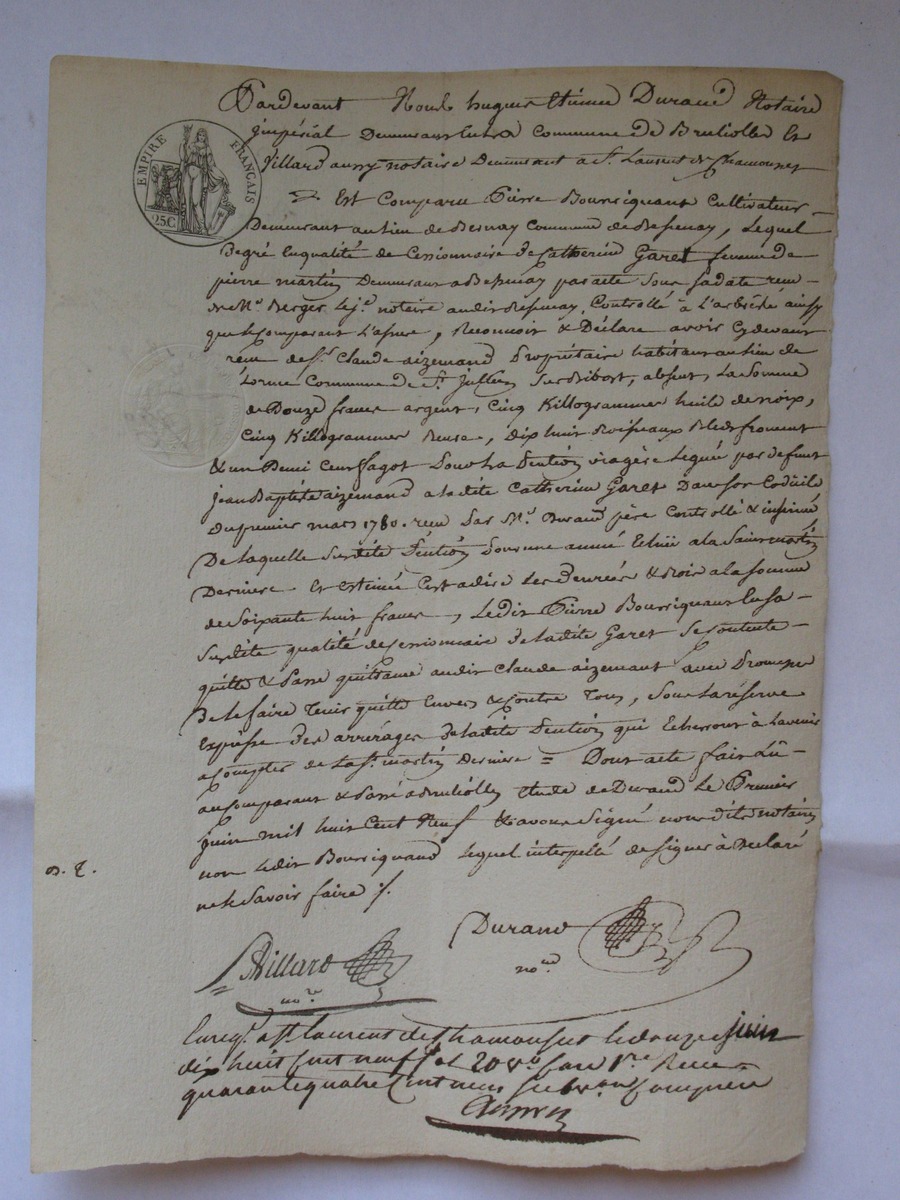 EMPIRE FRANÇAIS
25C
Pardevant Nous hugues Etienne Durand Notaire
impérial Demeurant En la Commune de Brullioles Et
Villard aussy notaire Demeurant a St. Laurent de Chamousset
Est Comparu Pierre Boursiquant Cultivateur
Demeurant au lieu de Bernay Commune de Bessenay, Lequel
De gré En qualité de Cessionnaire de Catherine Garet femme de
pierre martin Demeurant a Bessenay par acte Sous sa date reçu
Me. Berger Le je. notaire audit Bessenay, Controllé à L'arbresle ainsy
que le Comparant L'assure, Reconnoit & Déclare avoir Cydevant
reçu de Sr. Claude aizemand Propriétaire habitant au lieu de
Commune de St. Jullien Sur Bibost, absent, La Somme
de Douze francs argent, Cinq Killogrammes huile de noix,
Cinq Killogrammes Beure, dix huit Boisseaux Bled froment
& un Demi Cent fagot Pour La Pention viagère Leguée par defunt
Jean Baptiste aizemand a la dite Catherine Garet Dans son Codicile
Du premier mars 1780. reçu Par Me. Durand père Controllé & insinué
De Laquelle Susdite Pention Pour une année Echüe a la Saint martin
Derniere Et Estimée C'est a dire Les Denrées & Bois a la somme
de Soixante huit francs, Ledit Pierre Boursiquant En sa
Susdite qualité de Cessionnaire De la dite Garet Se Contente
quitte & Passe quittance audit Claude aizemant avec Promesse
De le faire Tenir quitte Envers & Contre Tous, Sous La réserve
Expresse des arrérages de la dite Pention qui Echerront à L'avenir
a Compter de La St. martin Derniere = Dont acte fait Lû
au Comparant & Passé a Brullioles Etude de Durand Le Premier
Juin mil huit Cent Neuf & avons Signé nous dits notaires
non Ledit Boursiquand Lequel interpellé de Signer à Déclaré
ne le Savoir faire /.
D. E.
Durand
nore
Villard
nore
Enregt. a St. laurent de Chamousset le douze juin
dix huit Cent neuf fol 20 Vo Case 1re Reçu
quarante quatre Centimes Subvon Comprise